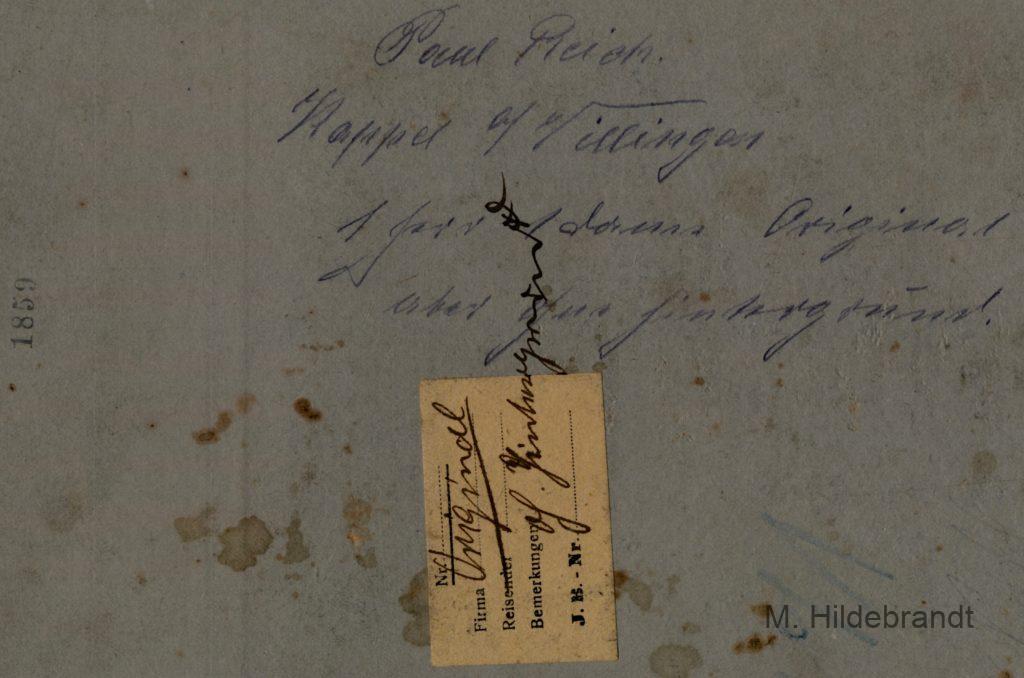 Paul Reich.
Kappel a/ Villingen
1 Herr 1 Dame Original
aber ohne Hintergrund.
1859
Nr.
Firma Original
Reisender
Bemerkungen Hintergrund
J. B. - Nr.
M. Hildebrandt